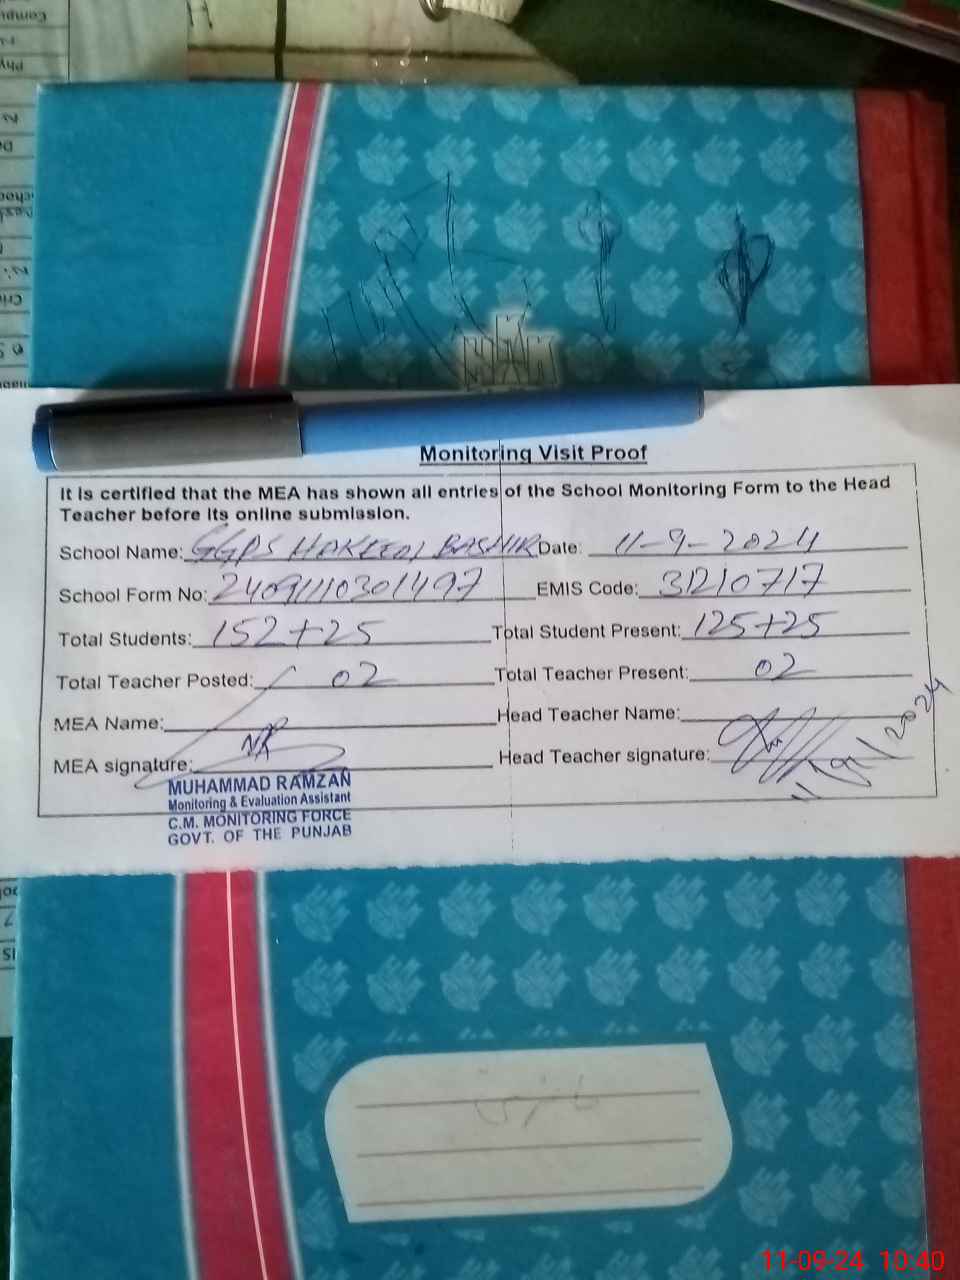 Monitoring Visit Proof
It is certified that the MEA has shown all entries of the School Monitoring Form to the Head
Teacher before its online submission.
School Name: GGPS HAKEEM BASHIR Date: 11-9-2024
School Form No: 24091110301497 EMIS Code: 31210717
Total Students: 152+25 Total Student Present: 125+25
Total Teacher Posted: 02 Total Teacher Present: 02
MEA Name: Head Teacher Name:
MEA signature: Head Teacher signature: 11/9/2024
MUHAMMAD RAMZAN
Monitoring & Evaluation Assistant
C.M. MONITORING FORCE
GOVT. OF THE PUNJAB
11-09-24 10:40